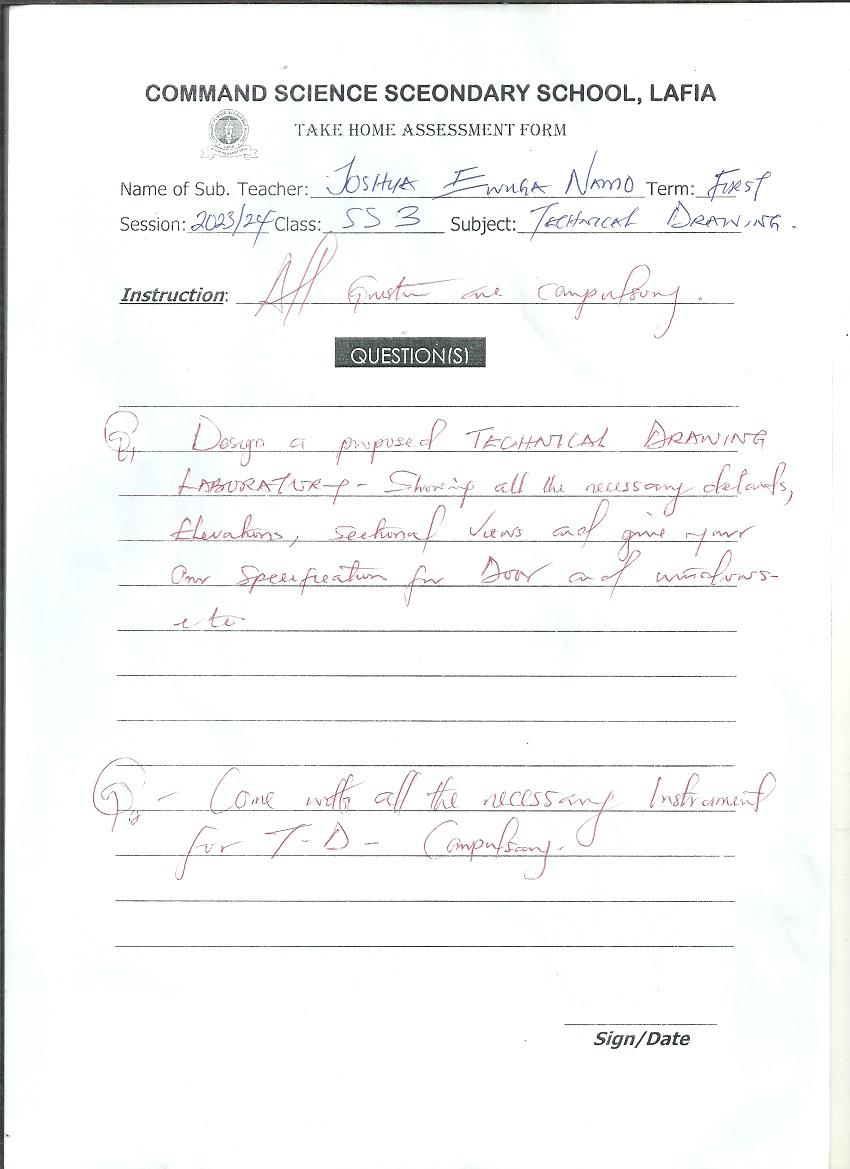 COMMAND SCIENCE SCEONDARY SCHOOL, LAFIA
TAKE HOME ASSESSMENT FORM
Name of Sub. Teacher: JOSHUA EWUGA NAMO Term: FIRST
Session: 2023/24 Class: SS 3 Subject: TECHNICAL DRAWING.
Instruction: All are compulsory.
QUESTION(S)
Q1 Design a proposed TECHNICAL DRAWING
LABORATORY - Showing all the necessary details,
Elevations, sectional views and give your
own specification for Door and windows-
etc
Q2 - Come with all the necessary Instrument
for T-D - Compulsory.
Sign/Date